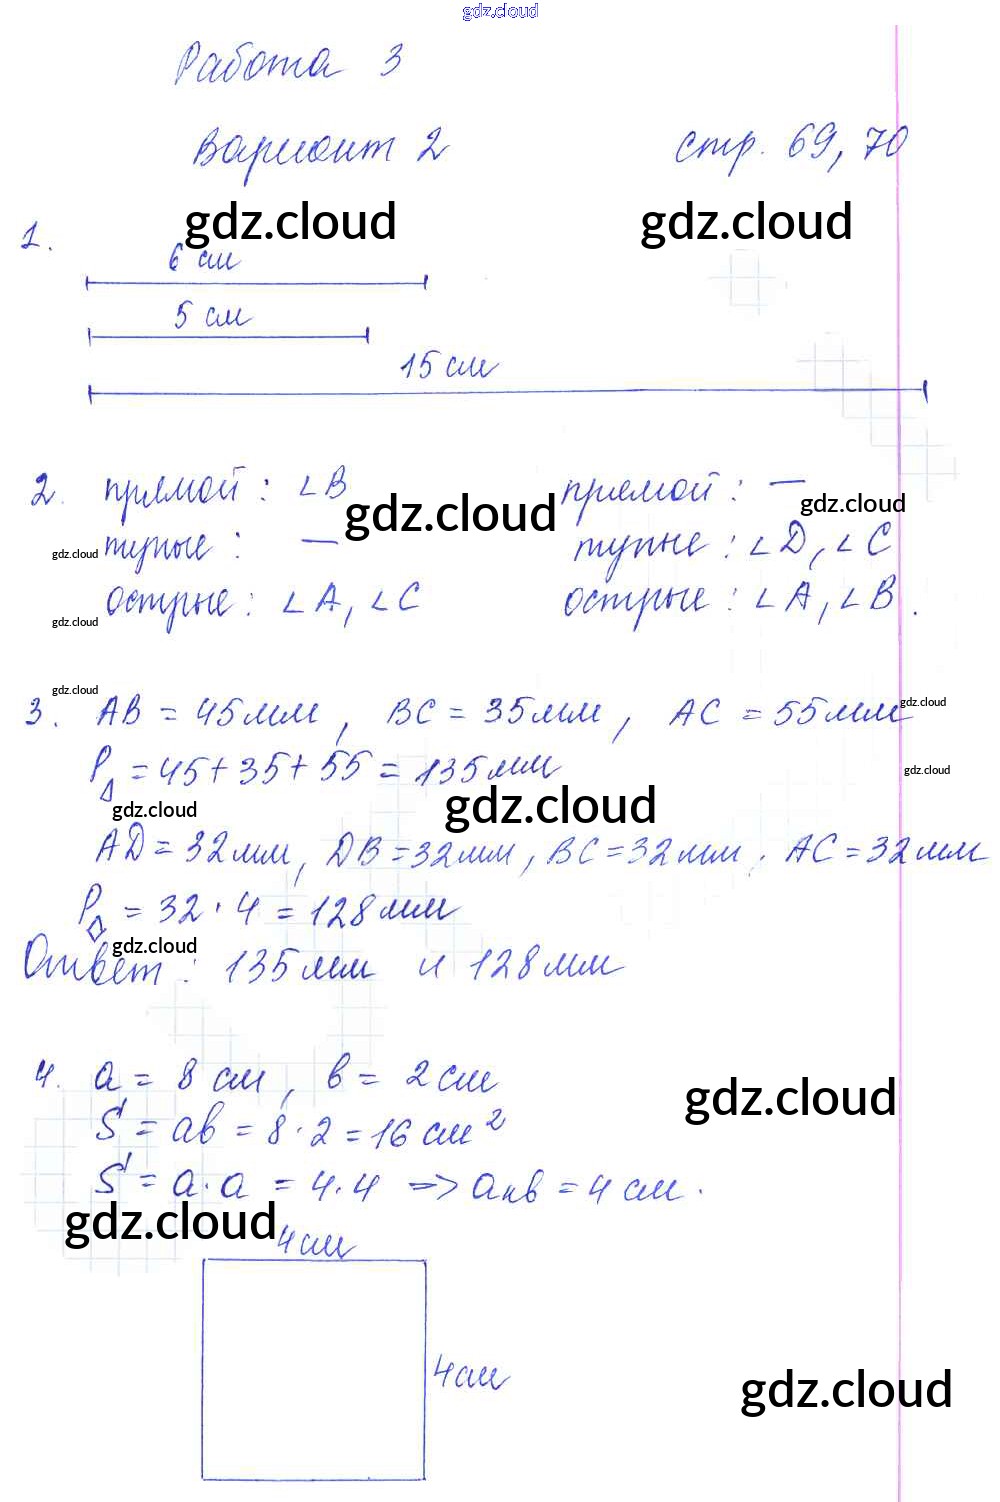 gdz.cloud
Работа 3
Вариант 2 стр. 69, 70
gdz.cloud gdz.cloud
1.
6 см
5 см
15 см
2. прямой: ∠B прямой: —
gdz.cloud gdz.cloud
тупые: — тупые: ∠D, ∠C
gdz.cloud
острые: ∠A, ∠C острые: ∠A, ∠B.
gdz.cloud
gdz.cloud gdz.cloud
3. AB = 45мм, BC = 35мм, AC = 55мм
P△ = 45+35+55 = 135мм
gdz.cloud
gdz.cloud gdz.cloud
AD = 32мм, DB = 32мм, BC = 32мм, AC = 32мм
P◇ = 32·4 = 128мм
gdz.cloud
Ответ: 135мм и 128мм
4. a = 8 см, b = 2 см
gdz.cloud
S = ab = 8·2 = 16 см²
S = a·a = 4·4 => aкв = 4 см.
gdz.cloud
4см
4см
gdz.cloud